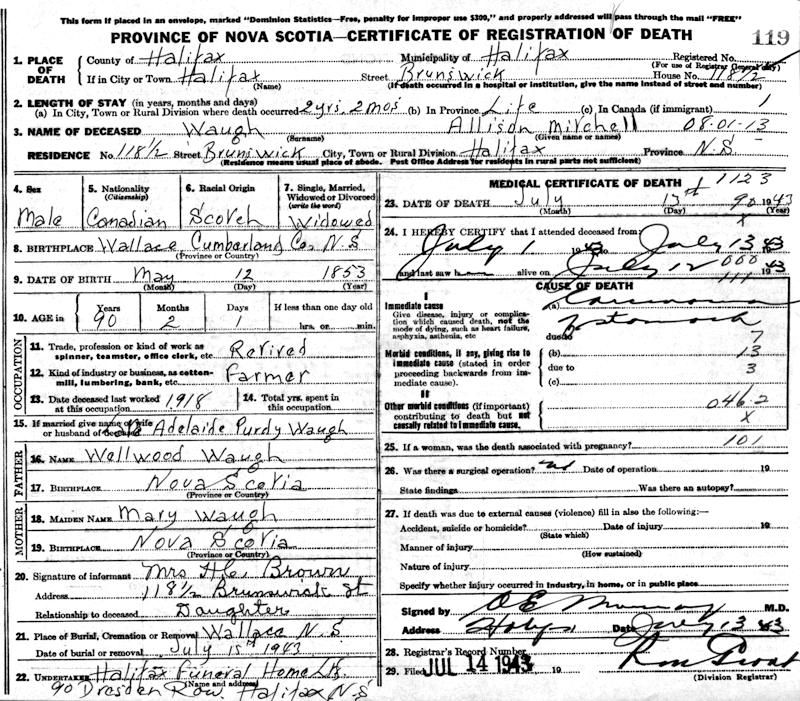 This form if placed in an envelope, marked "Dominion Statistics—Free, penalty for improper use $300," and properly addressed will pass through the mail "FREE"
PROVINCE OF NOVA SCOTIA—CERTIFICATE OF REGISTRATION OF DEATH 119
1. PLACE OF DEATH
County of Halifax Municipality of Halifax Registered No.
(For use of Registrar General only)
If in City or Town Halifax Street Brunswick House No. 118 1/2
(Name) (If death occurred in a hospital or institution, give the name instead of street and number)
2. LENGTH OF STAY (in years, months and days)
(a) In City, Town or Rural Division where death occurred 2 yrs. 2 mos (b) In Province Life (c) In Canada (if immigrant)
3. NAME OF DECEASED Waugh Allison Mitchell 08-01-13
(Surname) (Given name or names)
RESIDENCE No. 118 1/2 Street Brunswick City, Town or Rural Division Halifax Province N.S
(Residence means usual place of abode. Post Office Address for residents in rural parts not sufficient)
4. Sex
Male
5. Nationality
(Citizenship)
Canadian
6. Racial Origin
Scotch
7. Single, Married, Widowed or Divorced
(write the word)
Widowed
8. BIRTHPLACE Wallace Cumberland Co. N.S
(Province or Country)
9. DATE OF BIRTH May 12 1853
(Month) (Day) (Year)
10. AGE in Years Months Days If less than one day old
90 2 1 hrs. or min.
OCCUPATION
11. Trade, profession or kind of work as spinner, teamster, office clerk, etc. Retired
12. Kind of industry or business, as cotton-mill, lumbering, bank, etc. Farmer
13. Date deceased last worked at this occupation 1918 14. Total yrs. spent in this occupation
15. If married give name of wife or husband of deceased Adelaide Purdy Waugh
FATHER
16. NAME Wellwood Waugh
17. BIRTHPLACE Nova Scotia
(Province or Country)
MOTHER
18. MAIDEN NAME Mary Waugh
19. BIRTHPLACE Nova Scotia
(Province or Country)
20. Signature of informant Mrs Brown
Address 118 1/2 Brunswick St
Relationship to deceased Daughter
21. Place of Burial, Cremation or Removal Wallace N.S
Date of burial or removal July 15th 1943
22. UNDERTAKER Halifax Funeral Home Ltd.
(Name and address)
90 Dresden Row. Halifax N.S
MEDICAL CERTIFICATE OF DEATH 1123
23. DATE OF DEATH July 13 90 1943
(Month) (Day) (Year)
X
24. I HEREBY CERTIFY that I attended deceased from:
July 1 1943 to July 13 43
and last saw h alive on July 12 1943
000
111
CAUSE OF DEATH
I
Immediate cause
Give disease, injury or complication which caused death, not the mode of dying, such as heart failure, asphyxia, asthenia, etc.
(a) Carcinoma
of stomach
due to 7
Morbid conditions, if any, giving rise to immediate cause (stated in order proceeding backwards from immediate cause).
(b) 13
due to 3
(c)
II
Other morbid conditions (if important) contributing to death but not causally related to immediate cause.
046.2
X
25. If a woman, was the death associated with pregnancy? 101
26. Was there a surgical operation? no Date of operation 19
State findings Was there an autopsy?
27. If death was due to external causes (violence) fill in also the following:—
Accident, suicide or homicide? Date of injury 19
(State which)
Manner of injury
(How sustained)
Nature of injury
Specify whether injury occurred in industry, in home, or in public place
Signed by O E Murray M.D.
Address Date July 13 43
28. Registrar's Record Number
29. Filed JUL 14 1943 19
(Division Registrar)